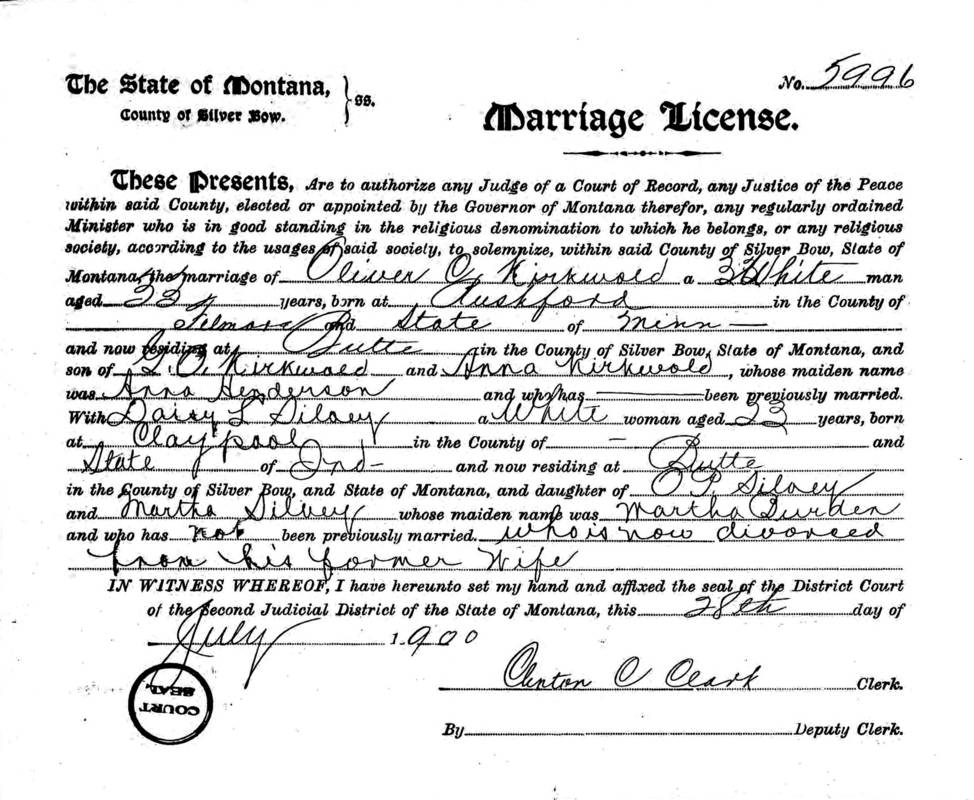 The State of Montana, } ss.
County of Silver Bow.
No. 5996
Marriage License.
These Presents, Are to authorize any Judge of a Court of Record, any Justice of the Peace
within said County, elected or appointed by the Governor of Montana therefor, any regularly ordained
Minister who is in good standing in the religious denomination to which he belongs, or any religious
society, according to the usages of said society, to solemnize, within said County of Silver Bow, State of
Montana, the marriage of Oliver O. Kirkwold a White man
aged 33 years, born at Rushford in the County of
Filmore and State of Minn
and now residing at Butte in the County of Silver Bow, State of Montana, and
son of L. O. Kirkwold and Anna Kirkwold, whose maiden name
was Anna Henderson and who has been previously married.
With Daisy L Silvey a White woman aged 23 years, born
at Claypool in the County of — and
State of Ind- and now residing at Butte
in the County of Silver Bow, and State of Montana, and daughter of O P. Silvey
and Martha Silvey whose maiden name was Martha Durden
and who has not been previously married. who is now divorced
from his former Wife
IN WITNESS WHEREOF, I have hereunto set my hand and affixed the seal of the District Court
of the Second Judicial District of the State of Montana, this 28th day of
July 1900
Clinton C Clark Clerk.
COURT SEAL.
By Deputy Clerk.